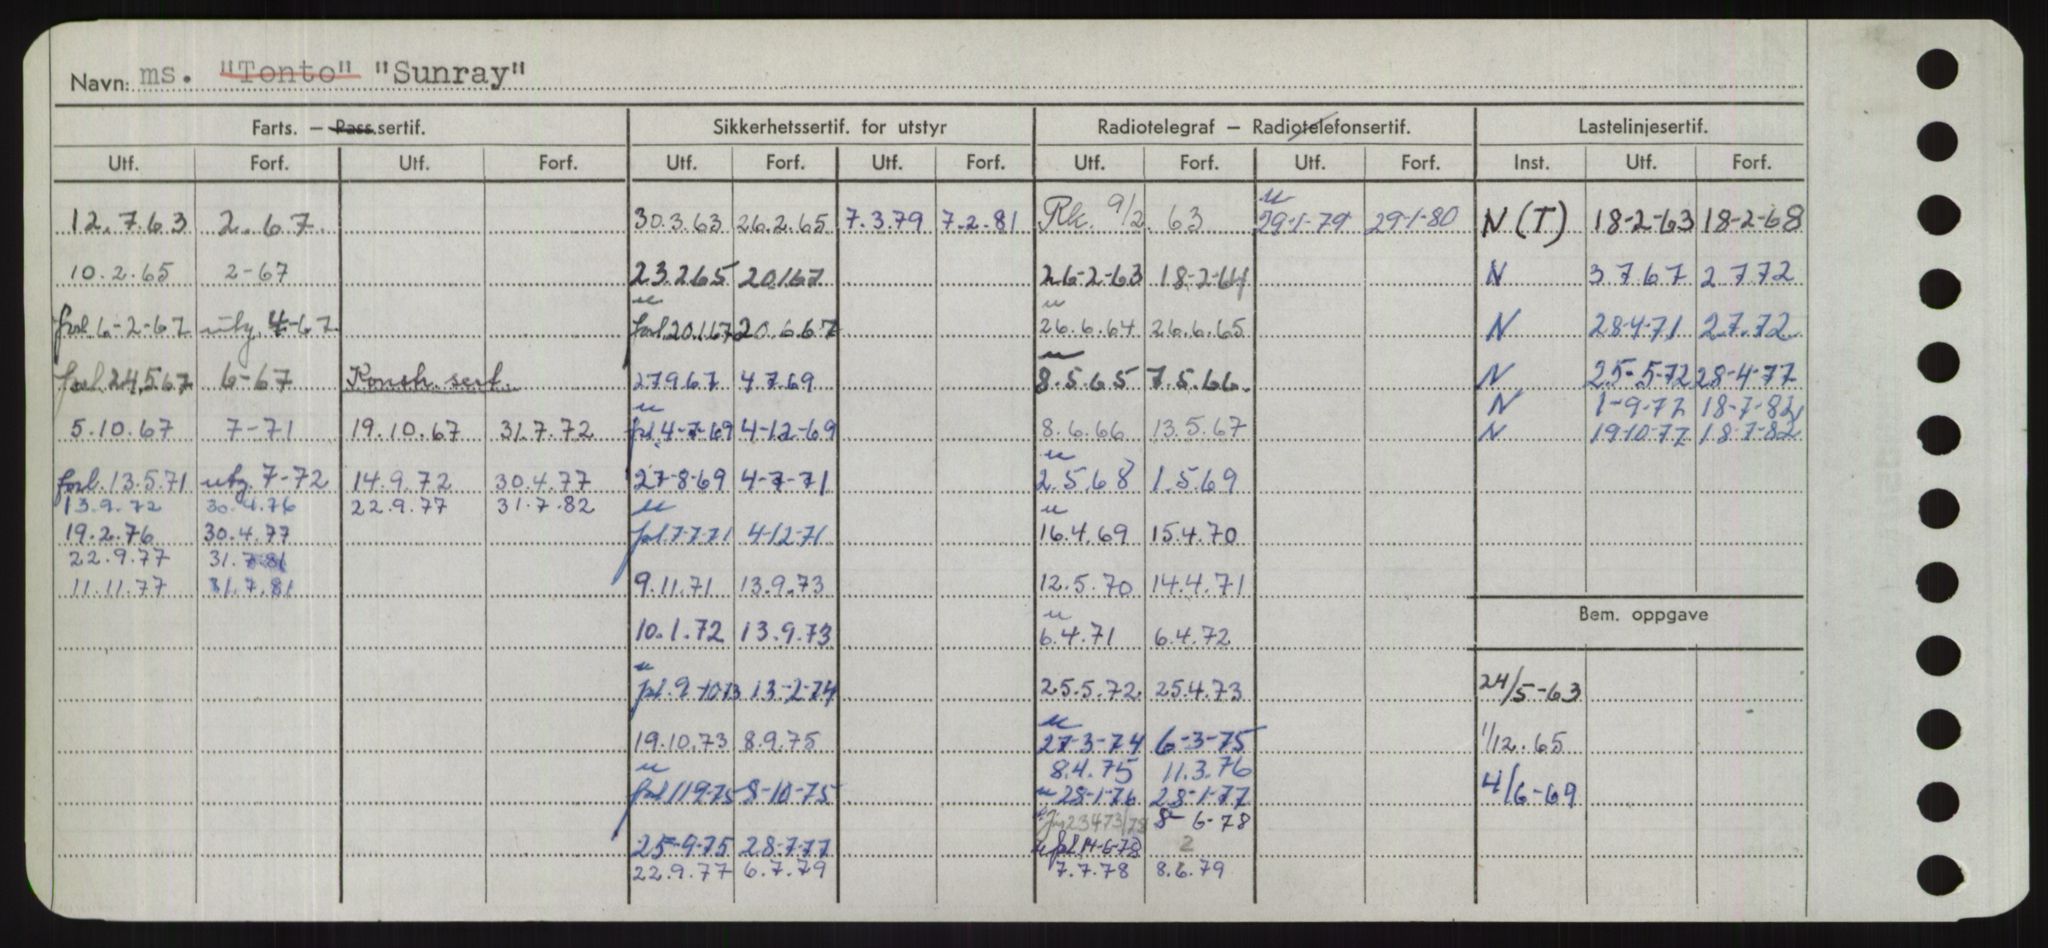 Navn: ms. "Tonto" "Sunray"
Farts. – Pass.sertif. Sikkerhetssertif. for utstyr Radiotelegraf – Radiotelefonsertif. Lastelinjesertif.
Utf. Forf. Utf. Forf. Utf. Forf. Utf. Forf. Utf. Forf. Utf. Forf. Inst. Utf. Forf.
12.7.63 2.67. 30.3.63 26.2.65 7.3.79 7.2.81 Rk. 9/2 63 u 29-1-79 29-1-80 N (T) 18-2-63 18-2-68
10.2.65 2-67 23.265 20167 26-2-63 18-2-64 N 3 7.67 2 7 72
forl. 6-2-67 utg. 4-67 u forl 20.167 20.6.67 u 26.6.64 26.6.65 N 28-4-71 2.7.72
forl. 24.5.67 6-67 Konstr. sert. 27967 4.7.69 u 8.5.65 7.5.66. N 25-5-72 28-4-77
N 1-9-77 18-7-82
5.10.67 7-71 19.10.67 31.7.72 u forl 4-7-69 4-12-69 8.6.66 13.5.67 N 19-10-77 18-7-82
forl. 13.5.71 utg 7-72 14.9.72 30.4.77 27-8-69 4-7-71 u 2.5.68 1.5.69
13.9.72 30.4.76 22.9.77 31.7.82
19.2.76 30.4.77 u forl 7-7-71 4-12-71 u 16.4.69 15.4.70
22.9.77 31.7.81
11.11.77 31.7.81 9.11.71 13.9.73 12.5.70 14.4.71
Bem. oppgave
10.1.72 13.9.73 u 6.4.71 6.4.72
u forl. 9-10-73 13-2-74 25.5.72 25.4.73 24/5-63
19.10.73 8.9.75 u 27-3-74 6-3-75 1/12.65
8.4.75 11.3.76
u forl 11975 8-10-75 u 28-1-76 28-1-77 4/6-69
23473/78 8-6-78
25-9-75 28-7-77 u forl 14-6-78 2
22.9.77 6.7.79 7.7.78 8.6.79